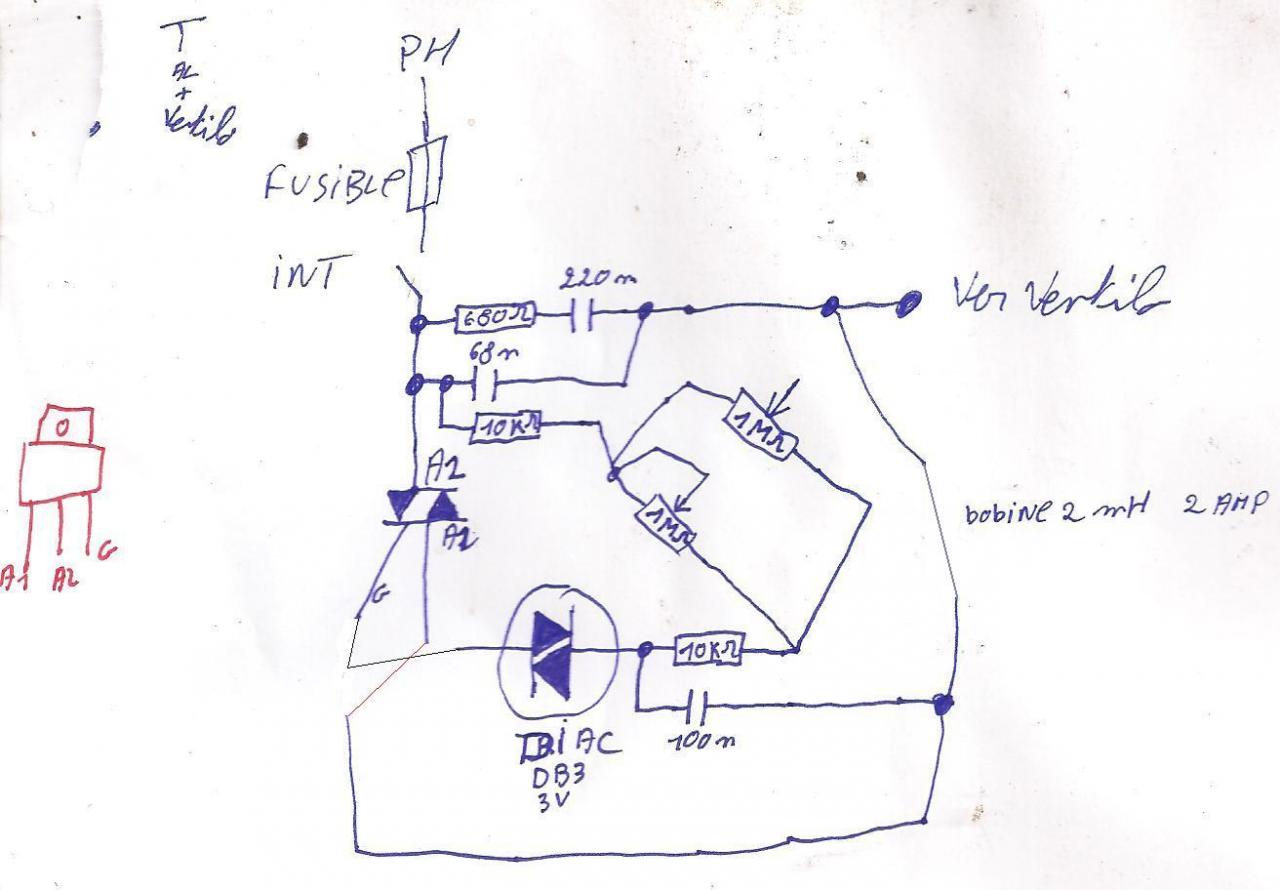 T
AL
+
Ventilo
PH
FUSIBLE
INT
220n
680Ω
Ver Ventilo
68n
10KΩ
1MΩ
1MΩ
A2
A1
G
bobine 2 mH 2 AMP
A1 A2 G
10KΩ
100n
DIAC
DB3
3V